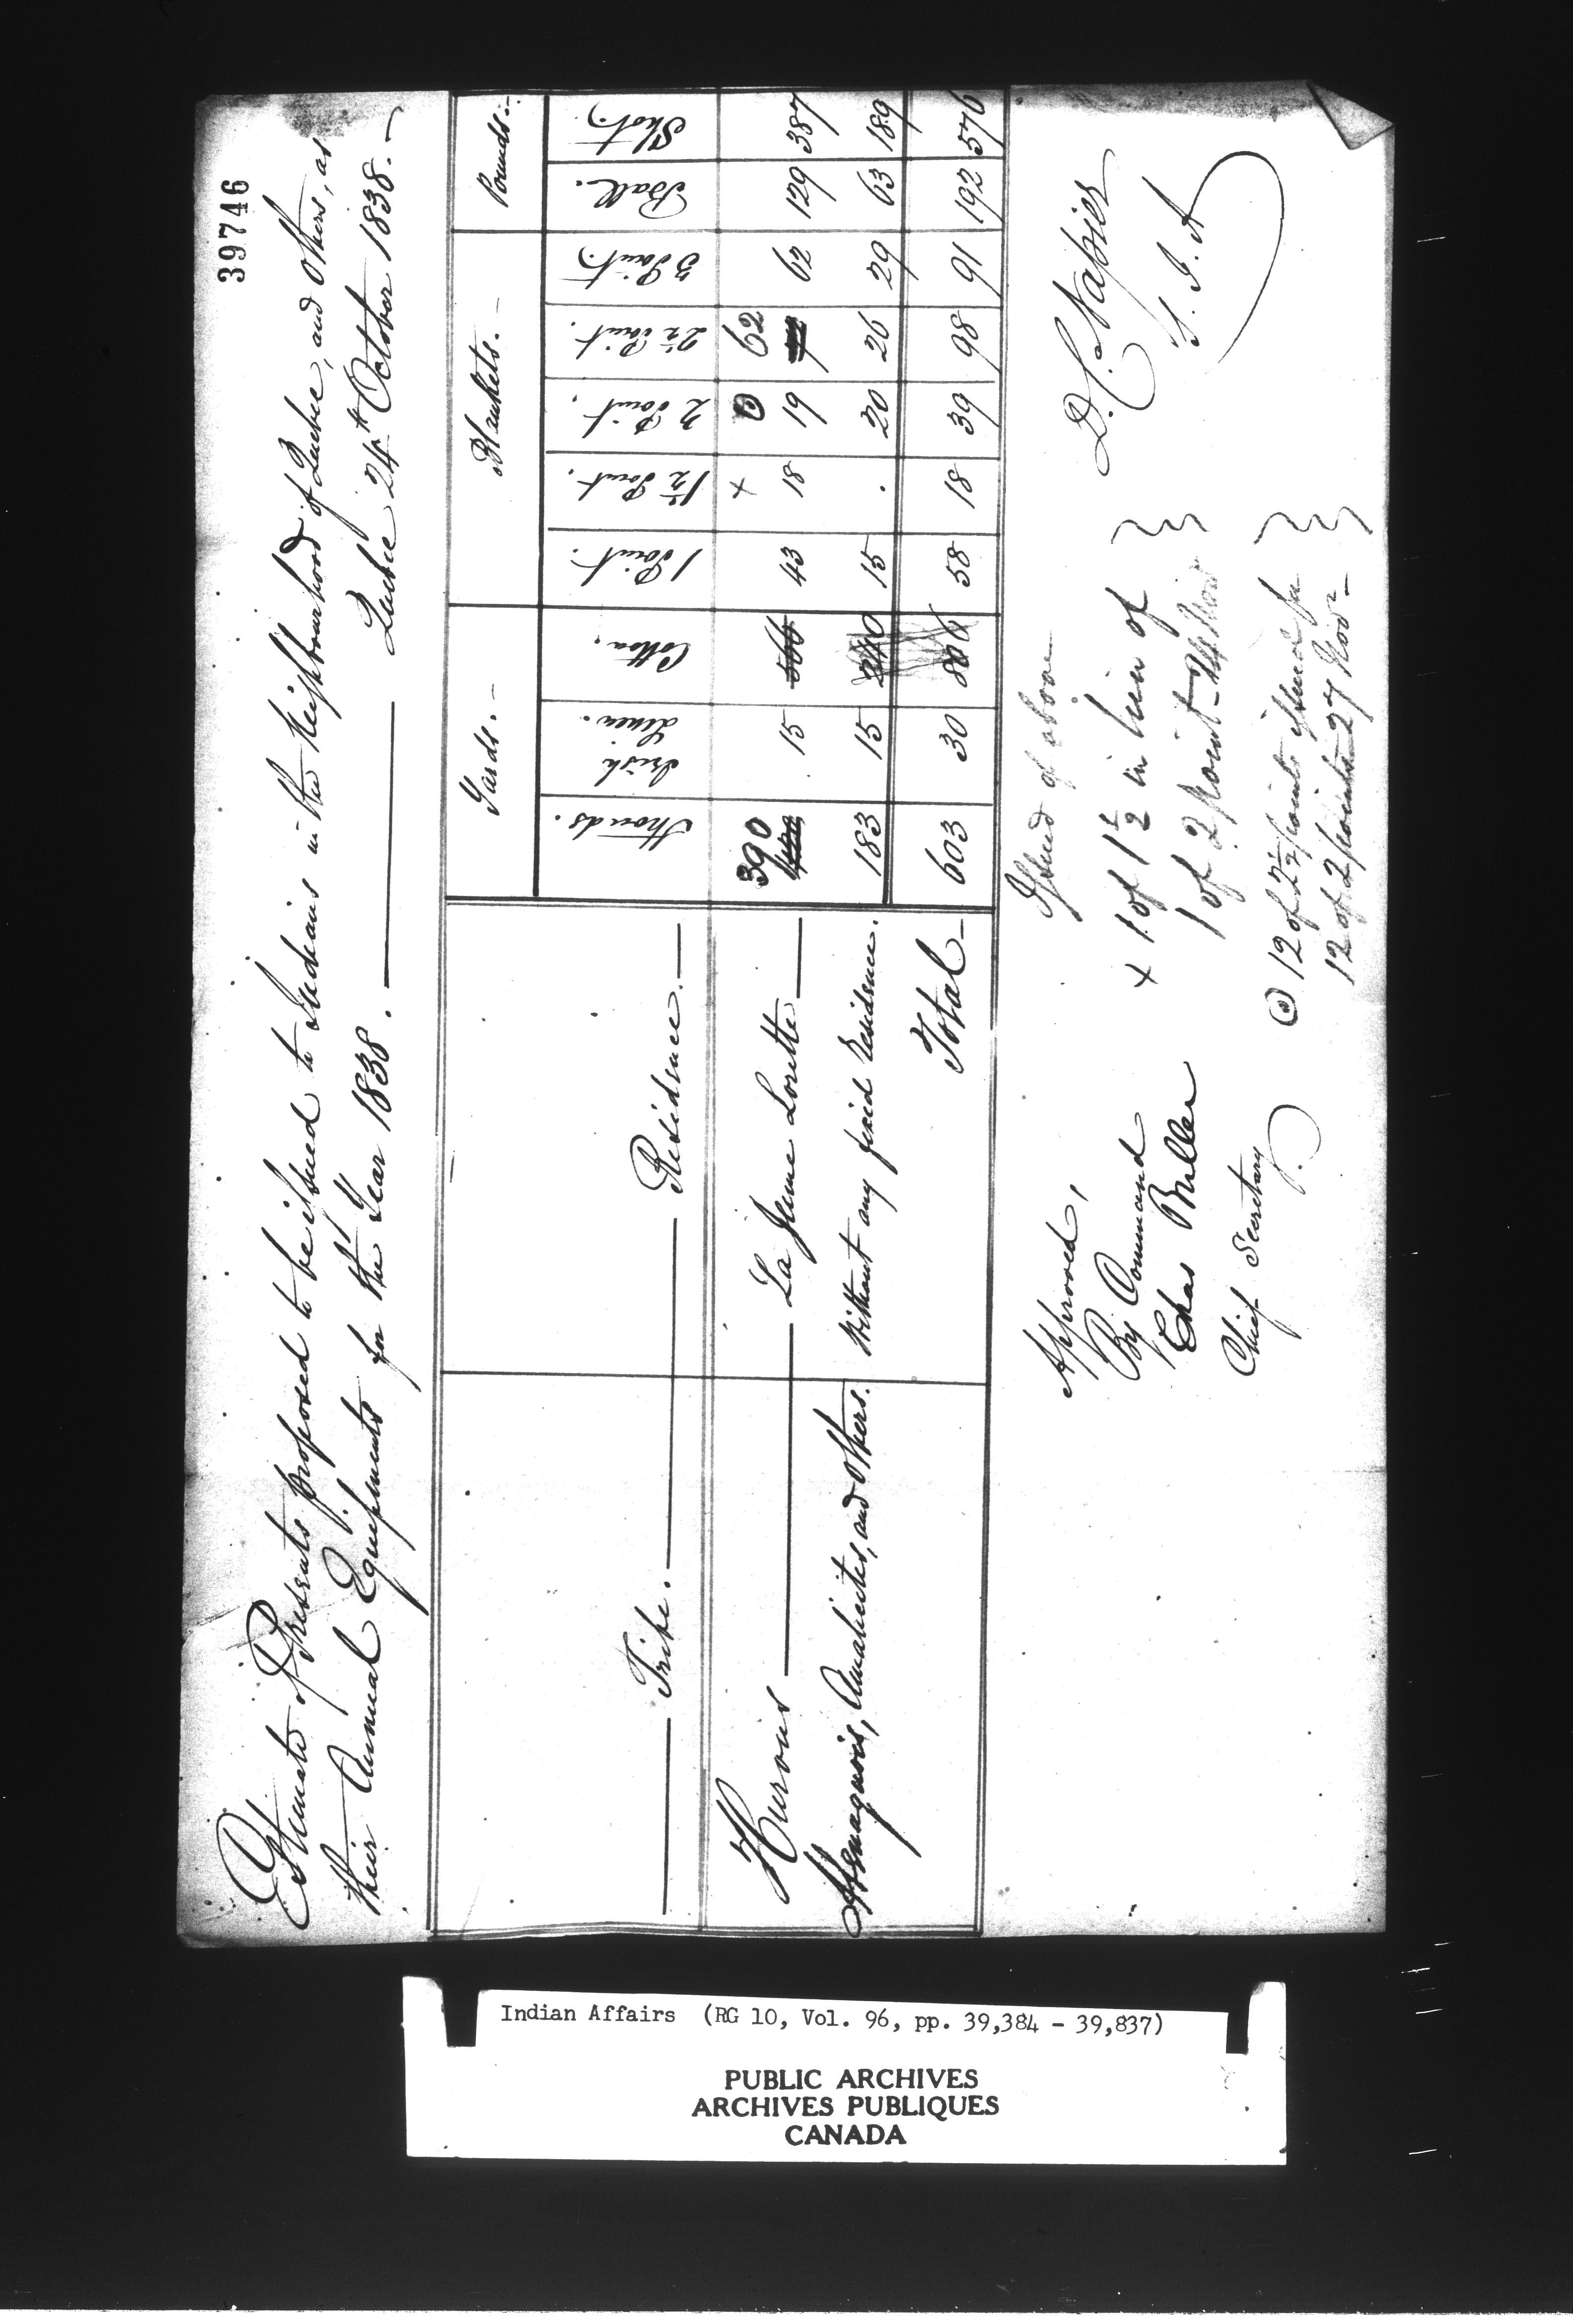 39746
Estimate of Presents proposed to be issued to Indians in the Neighbourhood of Quebec, and others, as
their Annual Equipments for the Year 1838. Quebec 24th October 1838.
Yards. Blankets. Pounds.
Tribe. Residence. Strouds. Irish Linen. Cotton. 1 Point. 1½ Point. 2 Point. 2½ Point. 3 Point. Ball. Shot.
390 x 62
Hurons La Jeune Lorette 420 15 566 43 18 19 62 129 387
Abenaquois, Amalicites, and others. Without any fixed Residence. 183 15 240 15 . 20 26 29 63 189
Total 603 30 806 58 18 39 98 91 192 576
Approved,
By Command
Chas Buller
Chief Secretary
Issued of above
x 1 of 1½ in lieu of
1 of 2 point - 24 Novr
12 of 2½ points issued for
12 of 2 points 27 Novr
D. C. Napier
S. I. A
Indian Affairs (RG 10, Vol. 96, pp. 39,384 - 39,837)
PUBLIC ARCHIVES
ARCHIVES PUBLIQUES
CANADA